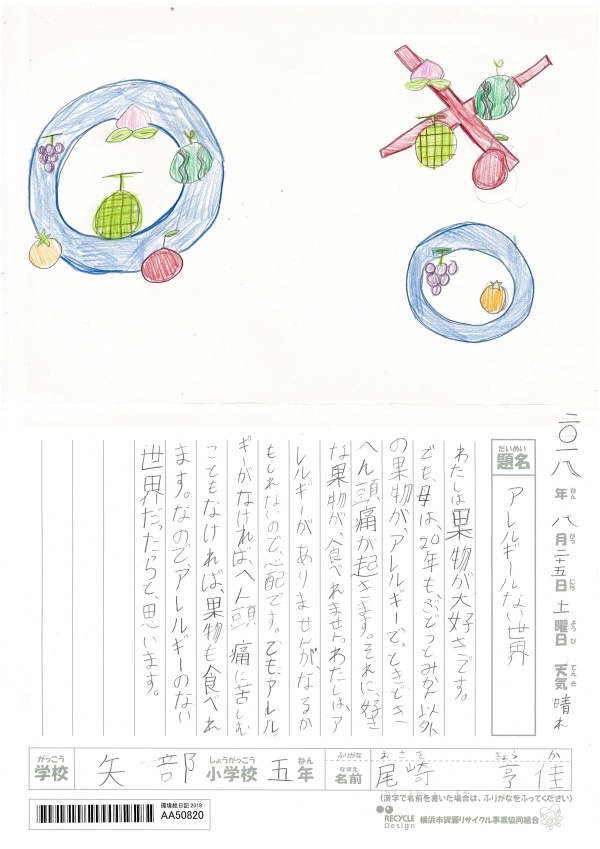 二〇一八年八月二十五日土曜日 天気 晴れ
ねん がつ にち ようび てんき
だいめい
題名
アレルギーのない世界
わたしは果物が大好きです。
でも、母は、20年も、ぶどうとみかん以外
の果物が、アレルギーで、ときどき
へん頭痛が起きます。それに、好き
な果物が、食べれません。わたしは、ア
レルギーがありませんが、なるか
もしれないので、心配です。でも、アレル
ギーがなければへん頭痛に苦しむ
こともなければ、果物も食べれ
ます。なので、アレルギーのない
世界だったらと、思います。
がっこう
学校
矢部
しょうがっこう
小学校
五
ねん
年
ふりがな
なまえ
名前
おざき きょうか
尾崎 享佳
(漢字で名前を書いた場合は、ふりがなをふってください)
環境絵日記 2018
AA50820
RECYCLE Design
横浜市資源リサイクル事業協同組合